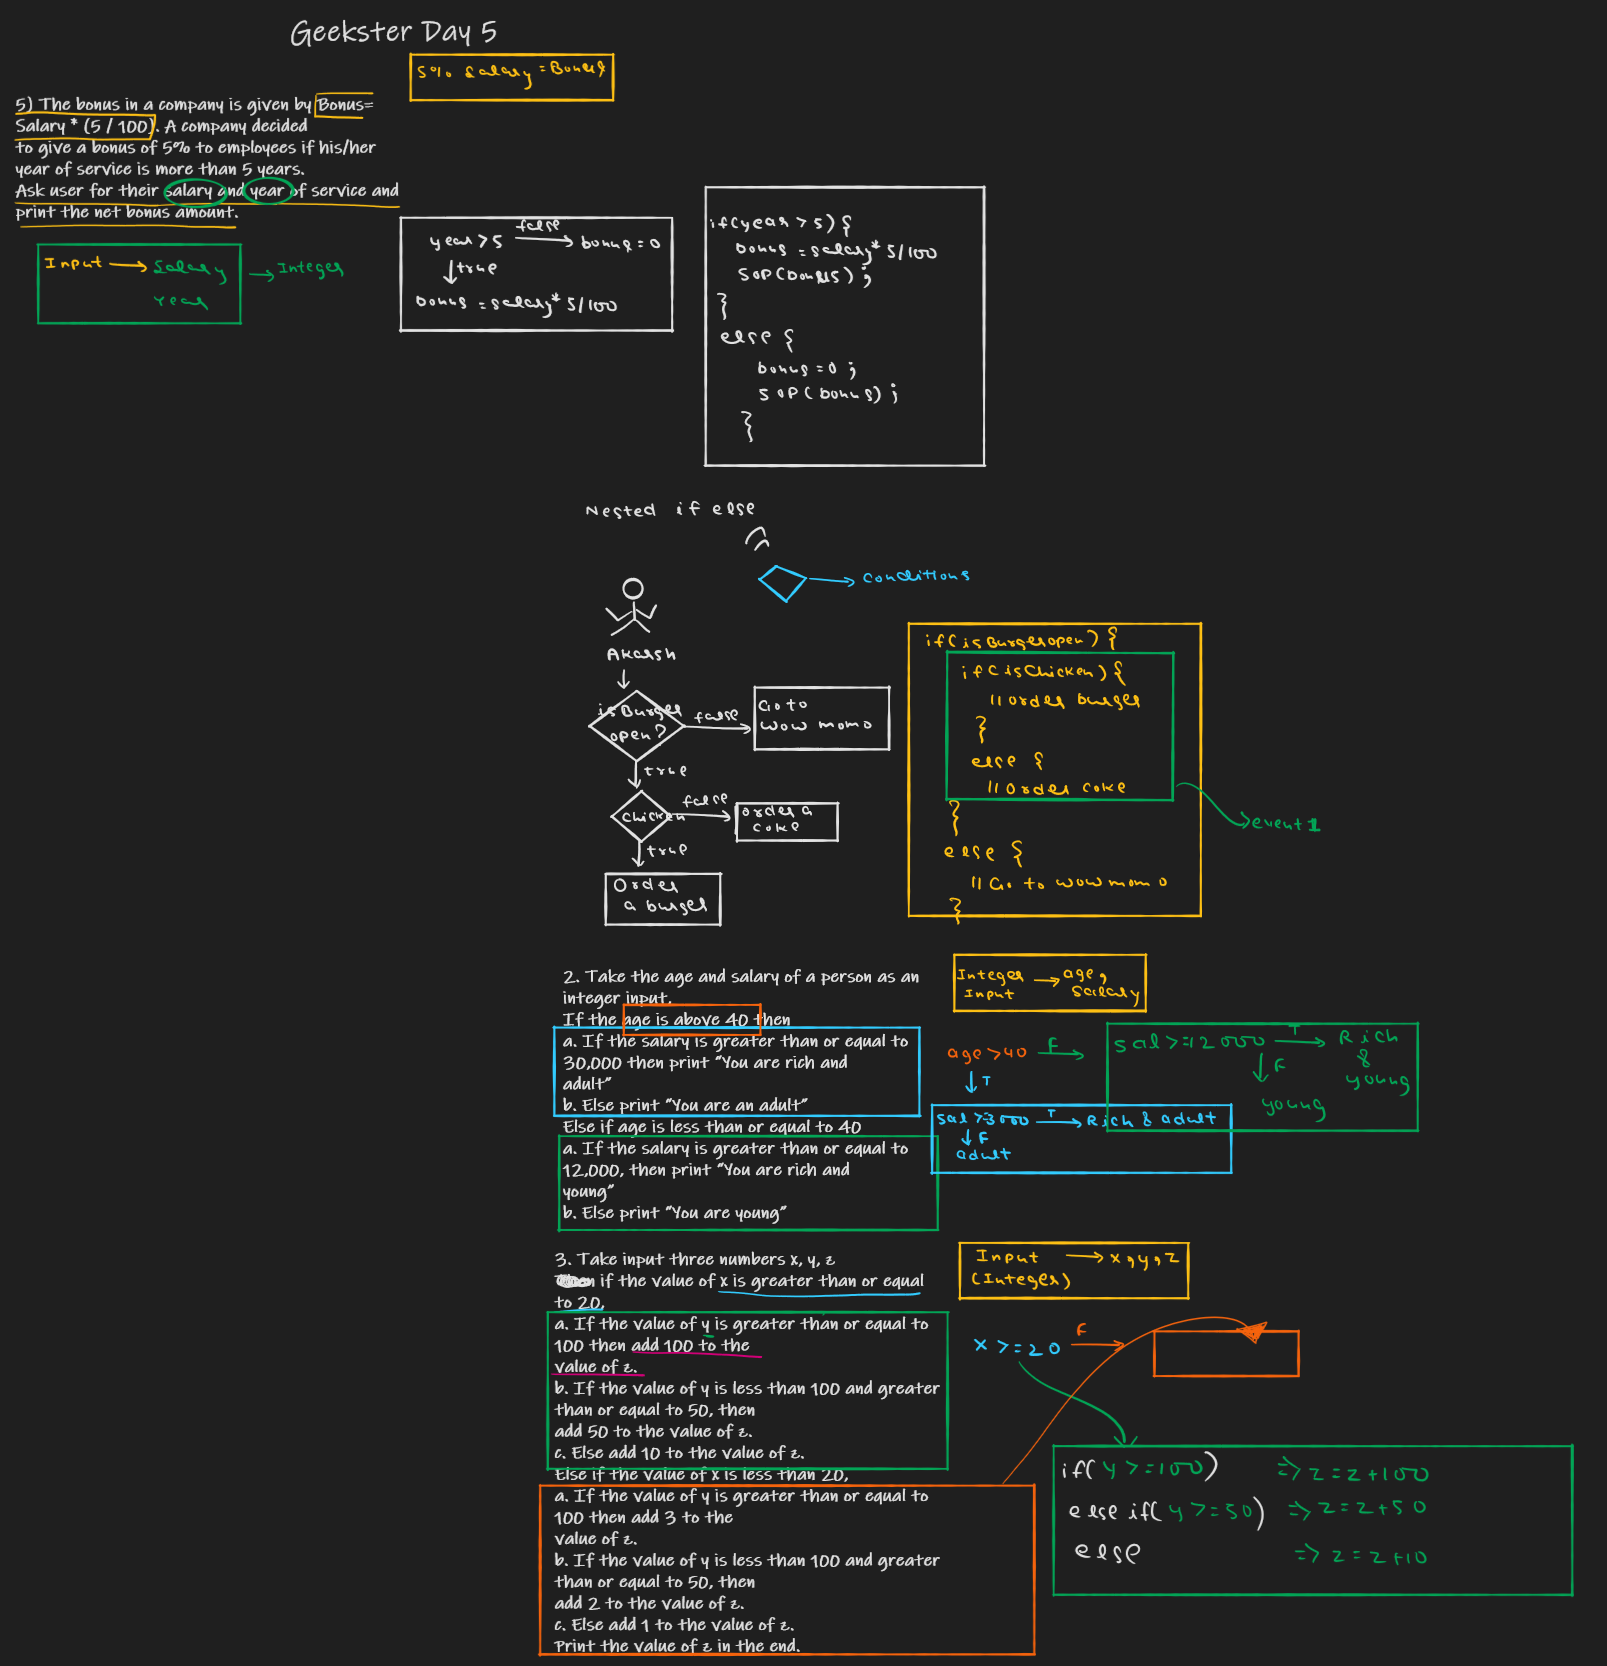 Geekster Day 5
5% Salary = Bonus
5) The bonus in a company is given by Bonus=
Salary * (5 / 100). A company decided
to give a bonus of 5% to employees if his/her
year of service is more than 5 years.
Ask user for their salary and year of service and
print the net bonus amount.
Input → Salary → Integer
Year
year > 5 false → bonus = 0
↓ true
bonus = salary * 5/100
if(year > 5) {
bonus = salary * 5/100
SOP(bonus) ;
}
else {
bonus = 0 ;
SOP(bonus) ;
}
Nested if else
→ conditions
Akarsh
isBurger
open?
false
Go to
wow momo
true
chicken
false
order a
coke
true
Order
a burger
if(isBurgeropen) {
if(isChicken) {
//order burger
}
else {
//Order coke
}
→ event 1
else {
//Go to wow momo
}
2. Take the age and salary of a person as an
integer input.
If the age is above 40 then
a. If the salary is greater than or equal to
30,000 then print "You are rich and
adult"
b. Else print "You are an adult"
Else if age is less than or equal to 40
a. If the salary is greater than or equal to
12,000, then print "You are rich and
young"
b. Else print "You are young"
Integer → age,
Input salary
age >40 F →
↓ T
sal >=12000 T → Rich
&
young
↓ F
young
sal >=3000 T → Rich & adult
↓ F
adult
3. Take input three numbers x, y, z
if the value of x is greater than or equal
to 20,
a. If the value of y is greater than or equal to
100 then add 100 to the
value of z.
b. If the value of y is less than 100 and greater
than or equal to 50, then
add 50 to the value of z.
c. Else add 10 to the value of z.
Else if the value of x is less than 20,
a. If the value of y is greater than or equal to
100 then add 3 to the
value of z.
b. If the value of y is less than 100 and greater
than or equal to 50, then
add 2 to the value of z.
c. Else add 1 to the value of z.
Print the value of z in the end.
Input → x, y, z
(Integer)
x >= 20 F →
if( y >=100) => z = z +100
else if( y >= 50) => z = z +50
else => z = z +10